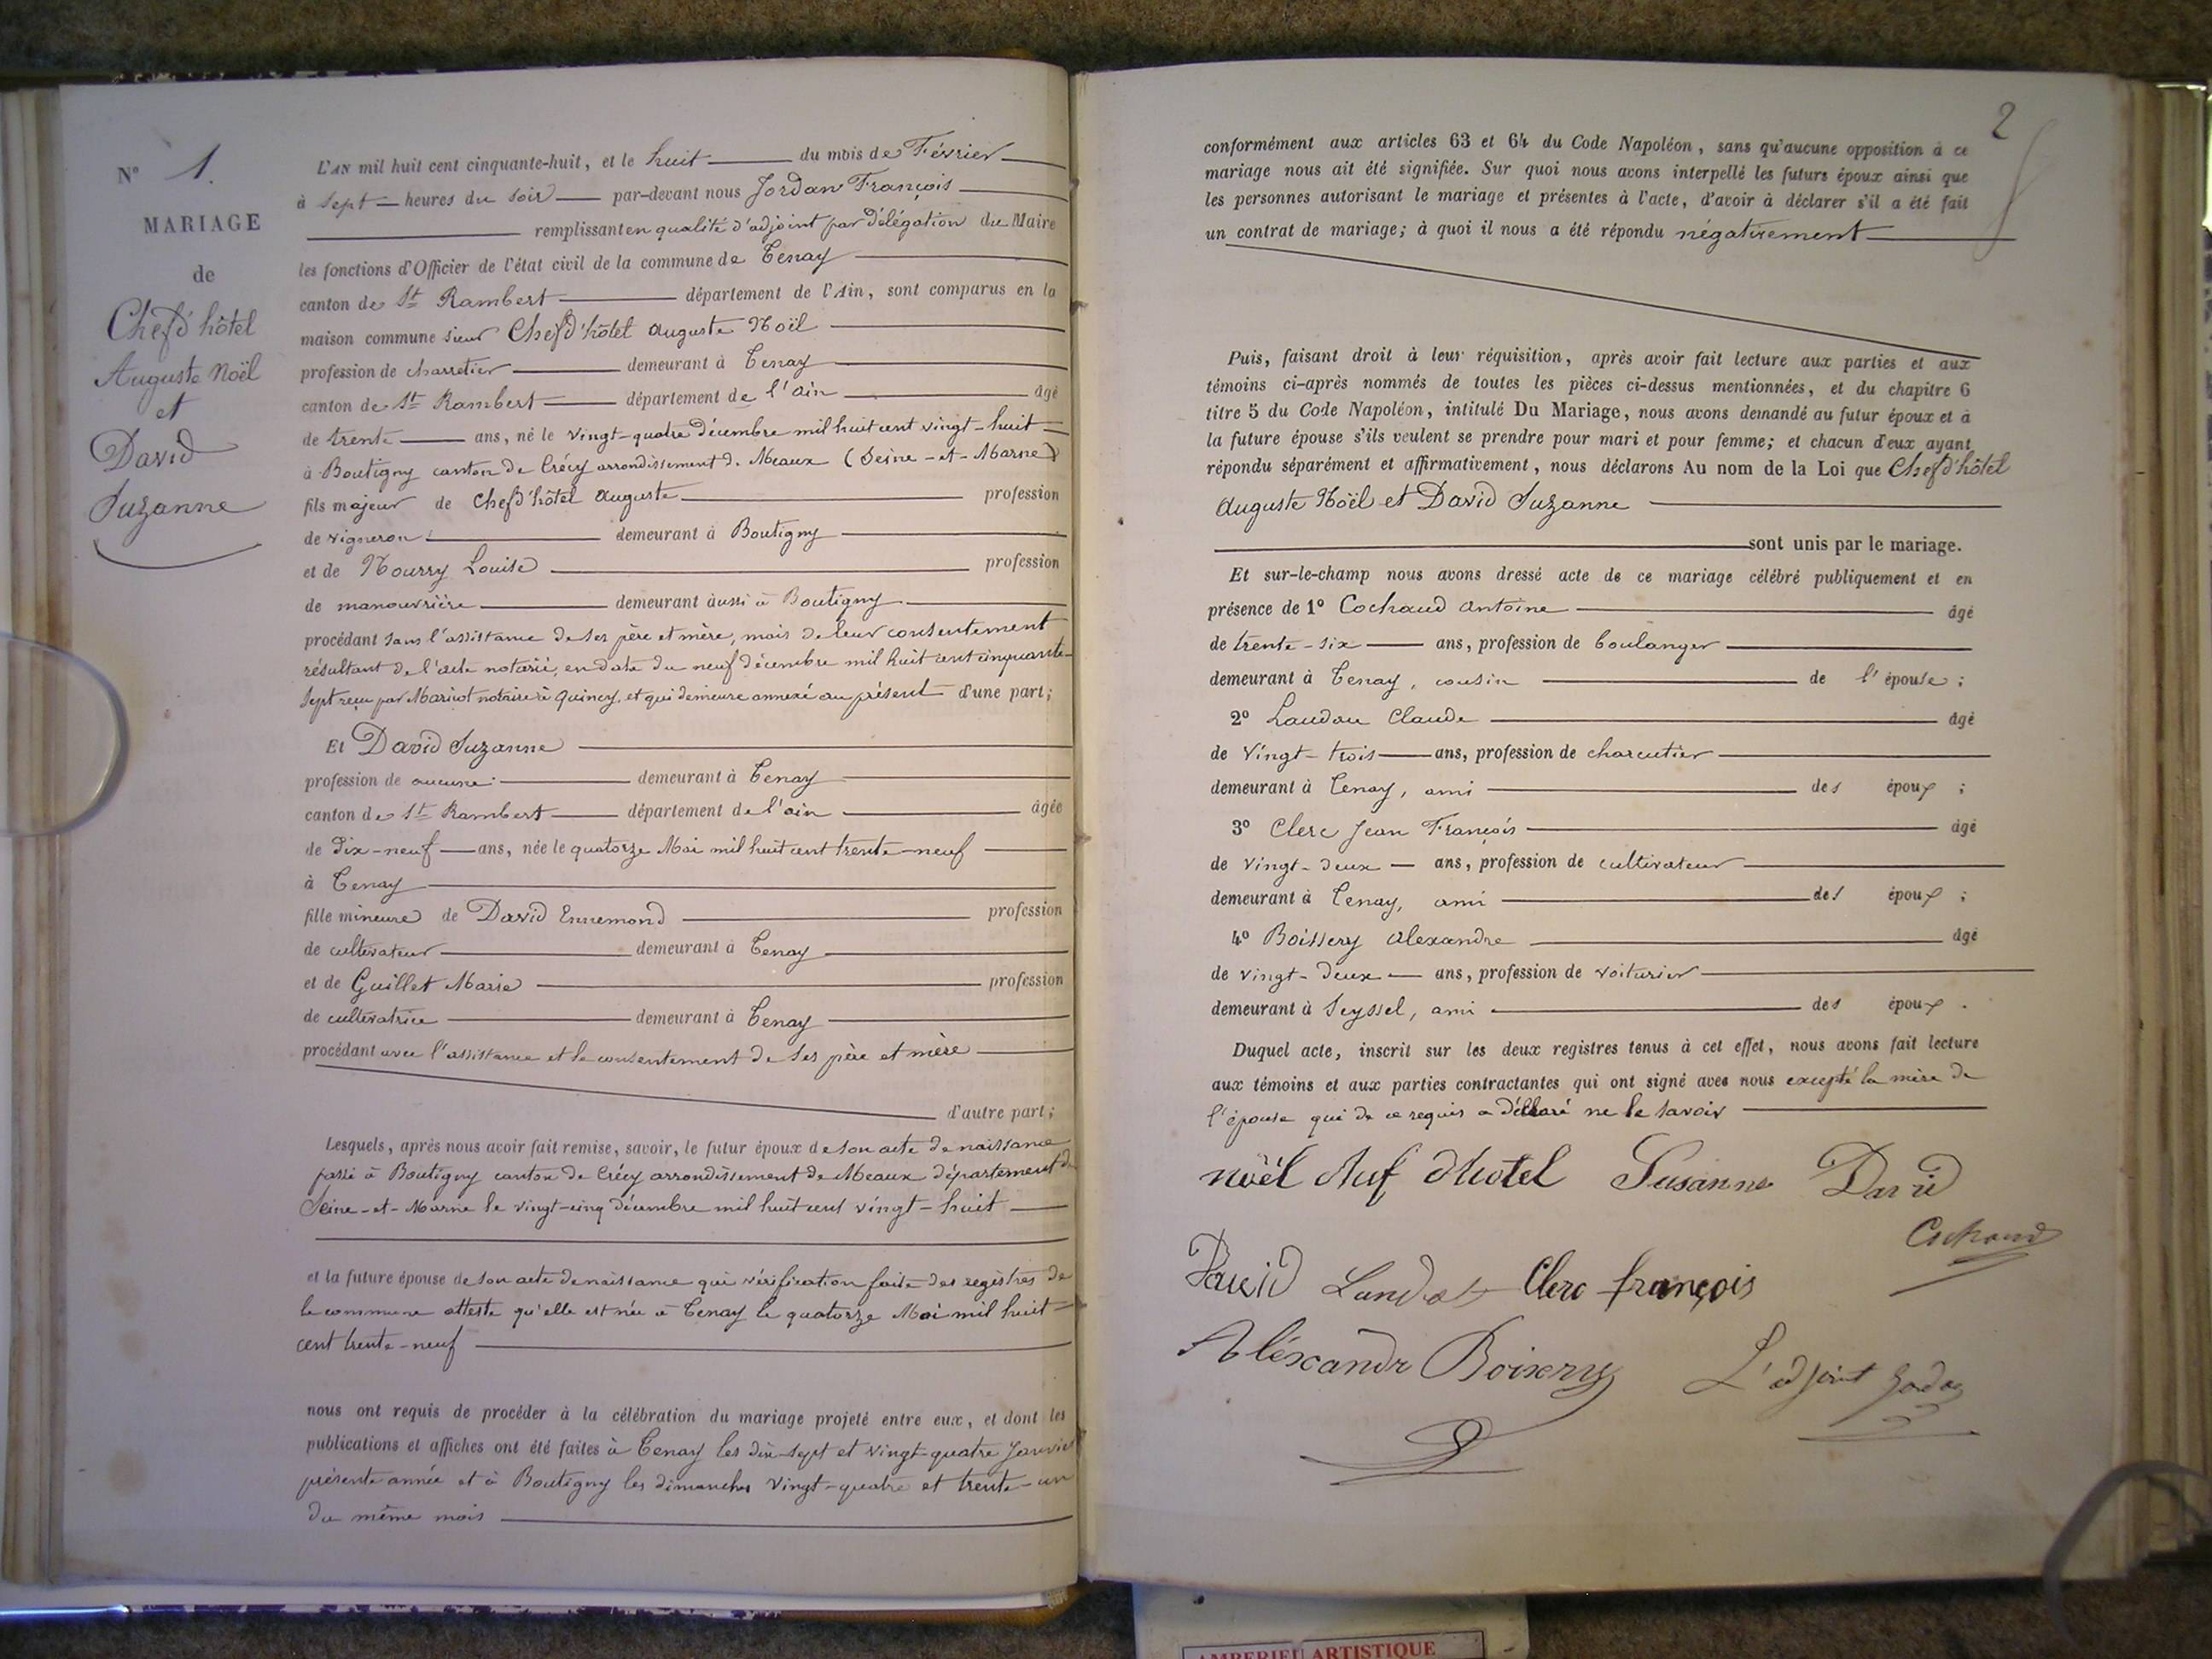 N° 1.
MARIAGE
de
Chefd'hôtel
Auguste Noël
et
David
Suzanne
L'AN mil huit cent cinquante-huit, et le huit du mois de Février
à sept heures du soir par-devant nous Jordan François
remplissant en qualité d'adjoint par délégation du Maire
les fonctions d'Officier de l'état civil de la commune de Tenay
canton de St Rambert département de l'Ain, sont comparus en la
maison commune sieur Chefd'hôtel Auguste Noël
profession de charretier demeurant à Tenay
canton de St Rambert département de l'ain âgé
de trente ans, né le vingt-quatre décembre mil huit cent vingt-huit
à Boutigny canton de Crécy arrondissement de Meaux (Seine-et-Marne)
fils majeur de Chefd'hôtel Auguste profession
de vigneron demeurant à Boutigny
et de Nourry Louise profession
de manouvrière demeurant aussi à Boutigny
procédant sans l'assistance de ses père et mère, mais de leur consentement
résultant de l'acte notarié, en date du neuf décembre mil huit cent cinquante-
sept reçu par Maricot notaire à Quincy, et qui demeure annexé au présent d'une part;
Et David Suzanne
profession de aucune demeurant à Tenay
canton de St Rambert département de l'ain âgée
de dix-neuf ans, née le quatorze Mai mil huit cent trente-neuf
à Tenay
fille mineure de David Ennemond profession
de cultivateur demeurant à Tenay
et de Guillet Marie profession
de cultivatrice demeurant à Tenay
procédant avec l'assistance et le consentement de ses père et mère
d'autre part;
Lesquels, après nous avoir fait remise, savoir, le futur époux de son acte de naissance
passé à Boutigny canton de Crécy arrondissement de Meaux département de
Seine-et-Marne le vingt-cinq décembre mil huit cent vingt-huit
et la future épouse de son acte de naissance qui vérification faite des registres de
la commune atteste qu'elle est née à Tenay le quatorze Mai mil huit
cent trente-neuf
nous ont requis de procéder à la célébration du mariage projeté entre eux, et dont les
publications et affiches ont été faites à Tenay les dix-sept et vingt-quatre Janvier
présente année et à Boutigny les dimanches vingt-quatre et trente-un
du même mois
2
conformément aux articles 63 et 64 du Code Napoléon, sans qu'aucune opposition à ce
mariage nous ait été signifiée. Sur quoi nous avons interpellé les futurs époux ainsi que
les personnes autorisant le mariage et présentes à l'acte, d'avoir à déclarer s'il a été fait
un contrat de mariage; à quoi il nous a été répondu négativement
Puis, faisant droit à leur réquisition, après avoir fait lecture aux parties et aux
témoins ci-après nommés de toutes les pièces ci-dessus mentionnées, et du chapitre 6
titre 5 du Code Napoléon, intitulé Du Mariage, nous avons demandé au futur époux et à
la future épouse s'ils veulent se prendre pour mari et pour femme; et chacun d'eux ayant
répondu séparément et affirmativement, nous déclarons Au nom de la Loi que Chefd'hôtel
Auguste Noël et David Suzanne
sont unis par le mariage.
Et sur-le-champ nous avons dressé acte de ce mariage célébré publiquement et en
présence de 1° Cochaud Antoine âgé
de trente-six ans, profession de boulanger
demeurant à Tenay, cousin de l'épouse;
2° Laudau Claude âgé
de vingt-trois ans, profession de charcutier
demeurant à Tenay, ami des époux;
3° Clerc Jean François âgé
de vingt-deux ans, profession de cultivateur
demeurant à Tenay, ami des époux;
4° Boissery Alexandre âgé
de vingt-deux ans, profession de voiturier
demeurant à Seyssel, ami des époux.
Duquel acte, inscrit sur les deux registres tenus à cet effet, nous avons fait lecture
aux témoins et aux parties contractantes qui ont signé avec nous excepté la mère de
l'épouse qui de ce requis a déclaré ne le savoir
noël chef dhotel Susanne David
Cochaud
David Clerc françois
Aléxandr Boixery L'adjoint
AMBERIEU ARTISTIQUE